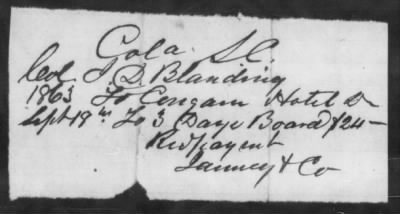 Cola. S.C.
Col J D Blanding
1863 To Congaree Hotel Dr
Sept 19th To 3 Days Board $24-
Rec'd payment
Janney & Co